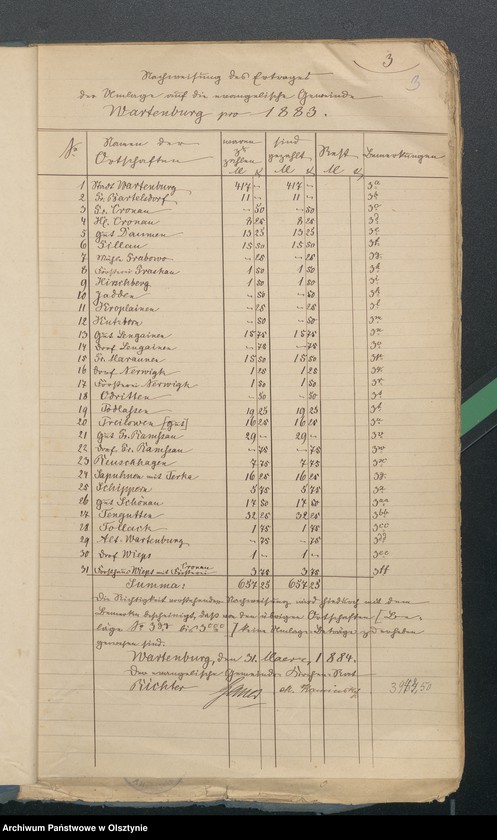 3
3
Nachweisung des Ertrages
der Umlage auf die evangelische Gemeinde
Wartenburg pro 1883.
No Namen der Ortschaften waren zu zahlen M ₰ sind gezahlt M ₰ Rest M ₰ Bemerkungen
1 Stadt Wartenburg 417 - 417 - 3a
2 Gr. Bartelsdorf 11 - 11 - 3b
3 Gr. Cronau - 50 - 50
4 Kl. Cronau 8 25 8 25
5 Gut Daumen 13 25 13 25
6 Fittau 15 50 15 50
7 Mühle Grabowo - 25 - 25
8 Försterei Graskau 1 50 1 50
9 Hirschberg 1 50 1 50
10 Jadden - 50 - 50
11 Kiroplainen - 25 - 25
12 - 50 - 50
13 Gut Lengainen 15 75 15 75
14 Dorf Lengainen - 75 - 75
15 Gr. Maraunen 15 50 15 50
16 Dorf Nerwigk 1 25 1 25
17 Försterei Nerwigk 1 50 1 50
18 Odritten - 50 - 50
19 Podlassen 19 25 19 25
20 Preilowen [Gut] 16 25 16 25
21 Gut Gr. Ramsau 29 - 29 -
22 Dorf Gr. Ramsau - 75 - 75
23 Reuschhagen 7 75 7 75
24 Sapuhnen mit Terka 16 25 16 25
25 Schippern 5 75 5 75
26 Gut Schönau 17 50 17 50 3aa
27 Tengutten 32 25 32 25 3bb
28 Tollack 1 75 1 75 3cc
29 Alt-Wartenburg - 75 - 75 3dd
30 Dorf Wieps 1 - 1 - 3ee
31 Forsthaus Wieps mit Försterei Cronau 3 75 3 75 3ff
Summa: 637 25 637 25
Die Richtigkeit vorstehender Nachweisung wird hiedurch mit dem
Bemerken bescheinigt, daß von den übrigen Ortschaften [Bei-
läge No bis] keine Umlage-Beträge zu erheben
gewesen sind.
Wartenburg, den 31. Maerz 1884.
Der evangelische Gemeinde-Kirchen-Rat
Richter
Archiwum Państwowe w Olsztynie